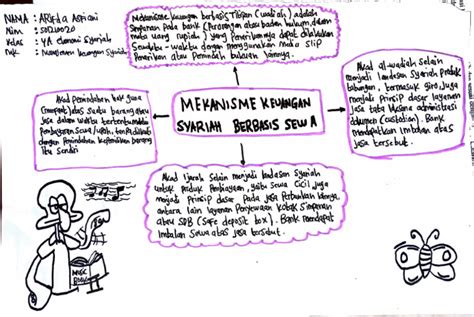 NAMA : Arfida Asriani
NIM :
Klas : VA Ekonomi Syariah
MK : Manajemen Keuangan Syariah
Mekanisme Keuangan berbasis Titipan (wadiah) adalah
Simpanan Pada bank (Perorangan atau badan hukum, dalam
mata uang rupiah) yang Penarikannya dapat dilakukan
Sewaktu-waktu dengan menggunakan media slip
Penarikan atau Pemindah bukuan lainnya.
Akad Pemindahan hak guna
(manfaat) atas suatu barang atau
jasa dalam waktu tertentu melalui
Pembayaran Sewa/upah, tanpa diikuti
dengan Pemindahan kepemilikan barang
itu Sendiri
MEKANISME KEUANGAN
SYARIAH BERBASIS SEWA
Akad al-wadiah selain
menjadi landasan Syariah Produk
tabungan, termasuk giro, Juga
menjadi Prinsip dasar layanan
jasa tata usaha administrasi
dokumen (custodian). Bank
mendapatkan Imbalan atas
jasa tersebut.
Akad Ijarah Selain menjadi landasan Syariah
untuk Produk Pembiayaan, yaitu Sewa Cicil, Juga
menjadi Prinsip dasar Pada jasa Perbankan lainnya
antara lain layanan Penyewaan Kotak Simpanan
atau SDB (Safe deposit box). Bank mendapat
Imbalan Sewa atas jasa tersebut.
MUSIC
BOOK